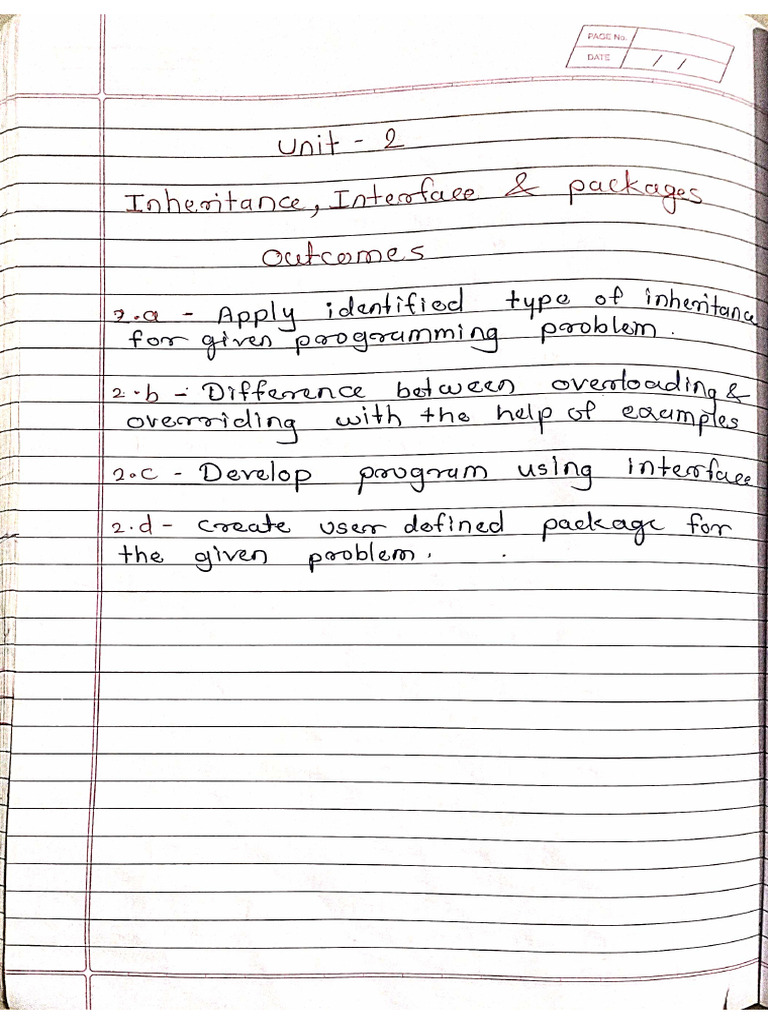 PAGE No.
DATE / /
Unit - 2
Inheritance, Interface & packages
Outcomes
2.a - Apply identified type of inheritance
for given programming problem.
2.b - Difference between overloading &
overriding with the help of examples
2.c - Develop program using interface
2.d - create user defined package for
the given problem.